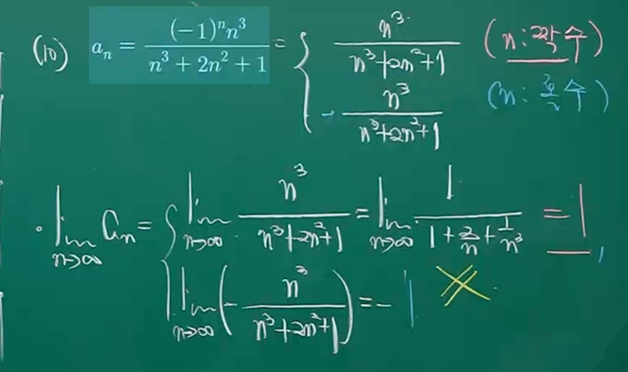 (10) a_n = \frac{(-1)^n n^3}{n^3 + 2n^2 + 1} = { \frac{n^3}{n^3+2n^2+1} (n: 짝수)
-\frac{n^3}{n^3+2n^2+1} (n: 홀수)
· \lim_{n→∞} a_n = { \lim_{n→∞} \frac{n^3}{n^3+2n^2+1} = \lim_{n→∞} \frac{1}{1+\frac{2}{n}+\frac{1}{n^3}} = 1,
\lim_{n→∞} (-\frac{n^3}{n^3+2n^2+1}) = -1